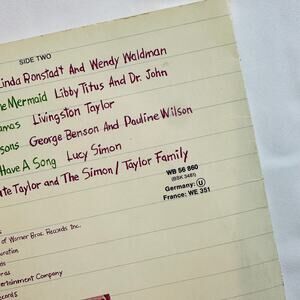 SIDE TWO
Linda Ronstadt And Wendy Waldman
Mermaid Libby Titus And Dr. John
Livingston Taylor
George Benson And Pauline Wilson
Have A Song Lucy Simon
Taylor and The Simon/Taylor Family
WB 56 860
(BSK 3481)
Germany: U
France: WE 351
of Warner Bros. Records Inc.
Entertainment Company